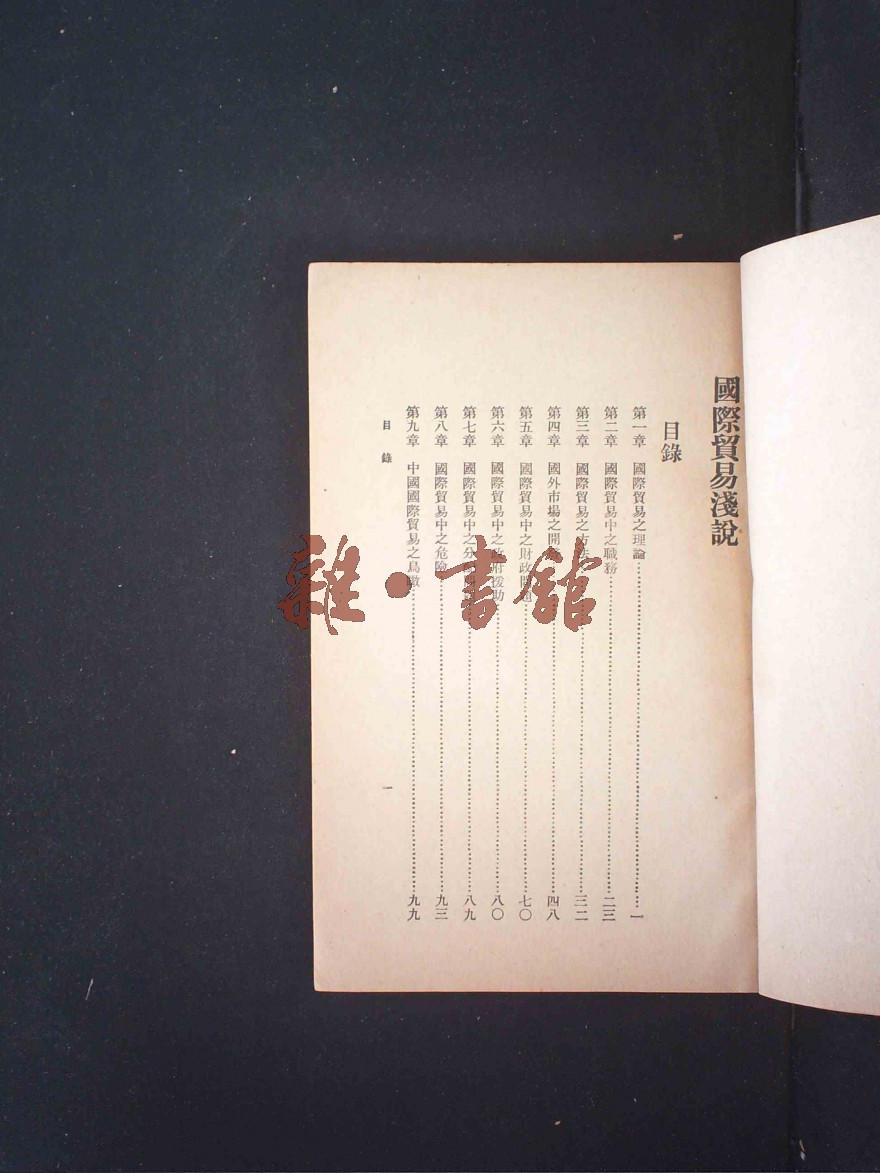 國際貿易淺說
目錄
第一章 國際貿易之理論……一
第二章 國際貿易中之職務……二三
第三章 國際貿易之方法……三二
第四章 國外市場之開……四八
第五章 國際貿易中之財政問題……七〇
第六章 國際貿易中之政府援助……八〇
第七章 國際貿易中之分……八九
第八章 國際貿易中之危險……九三
第九章 中國國際貿易之鳥瞰……九九
目錄
一
雜·書館